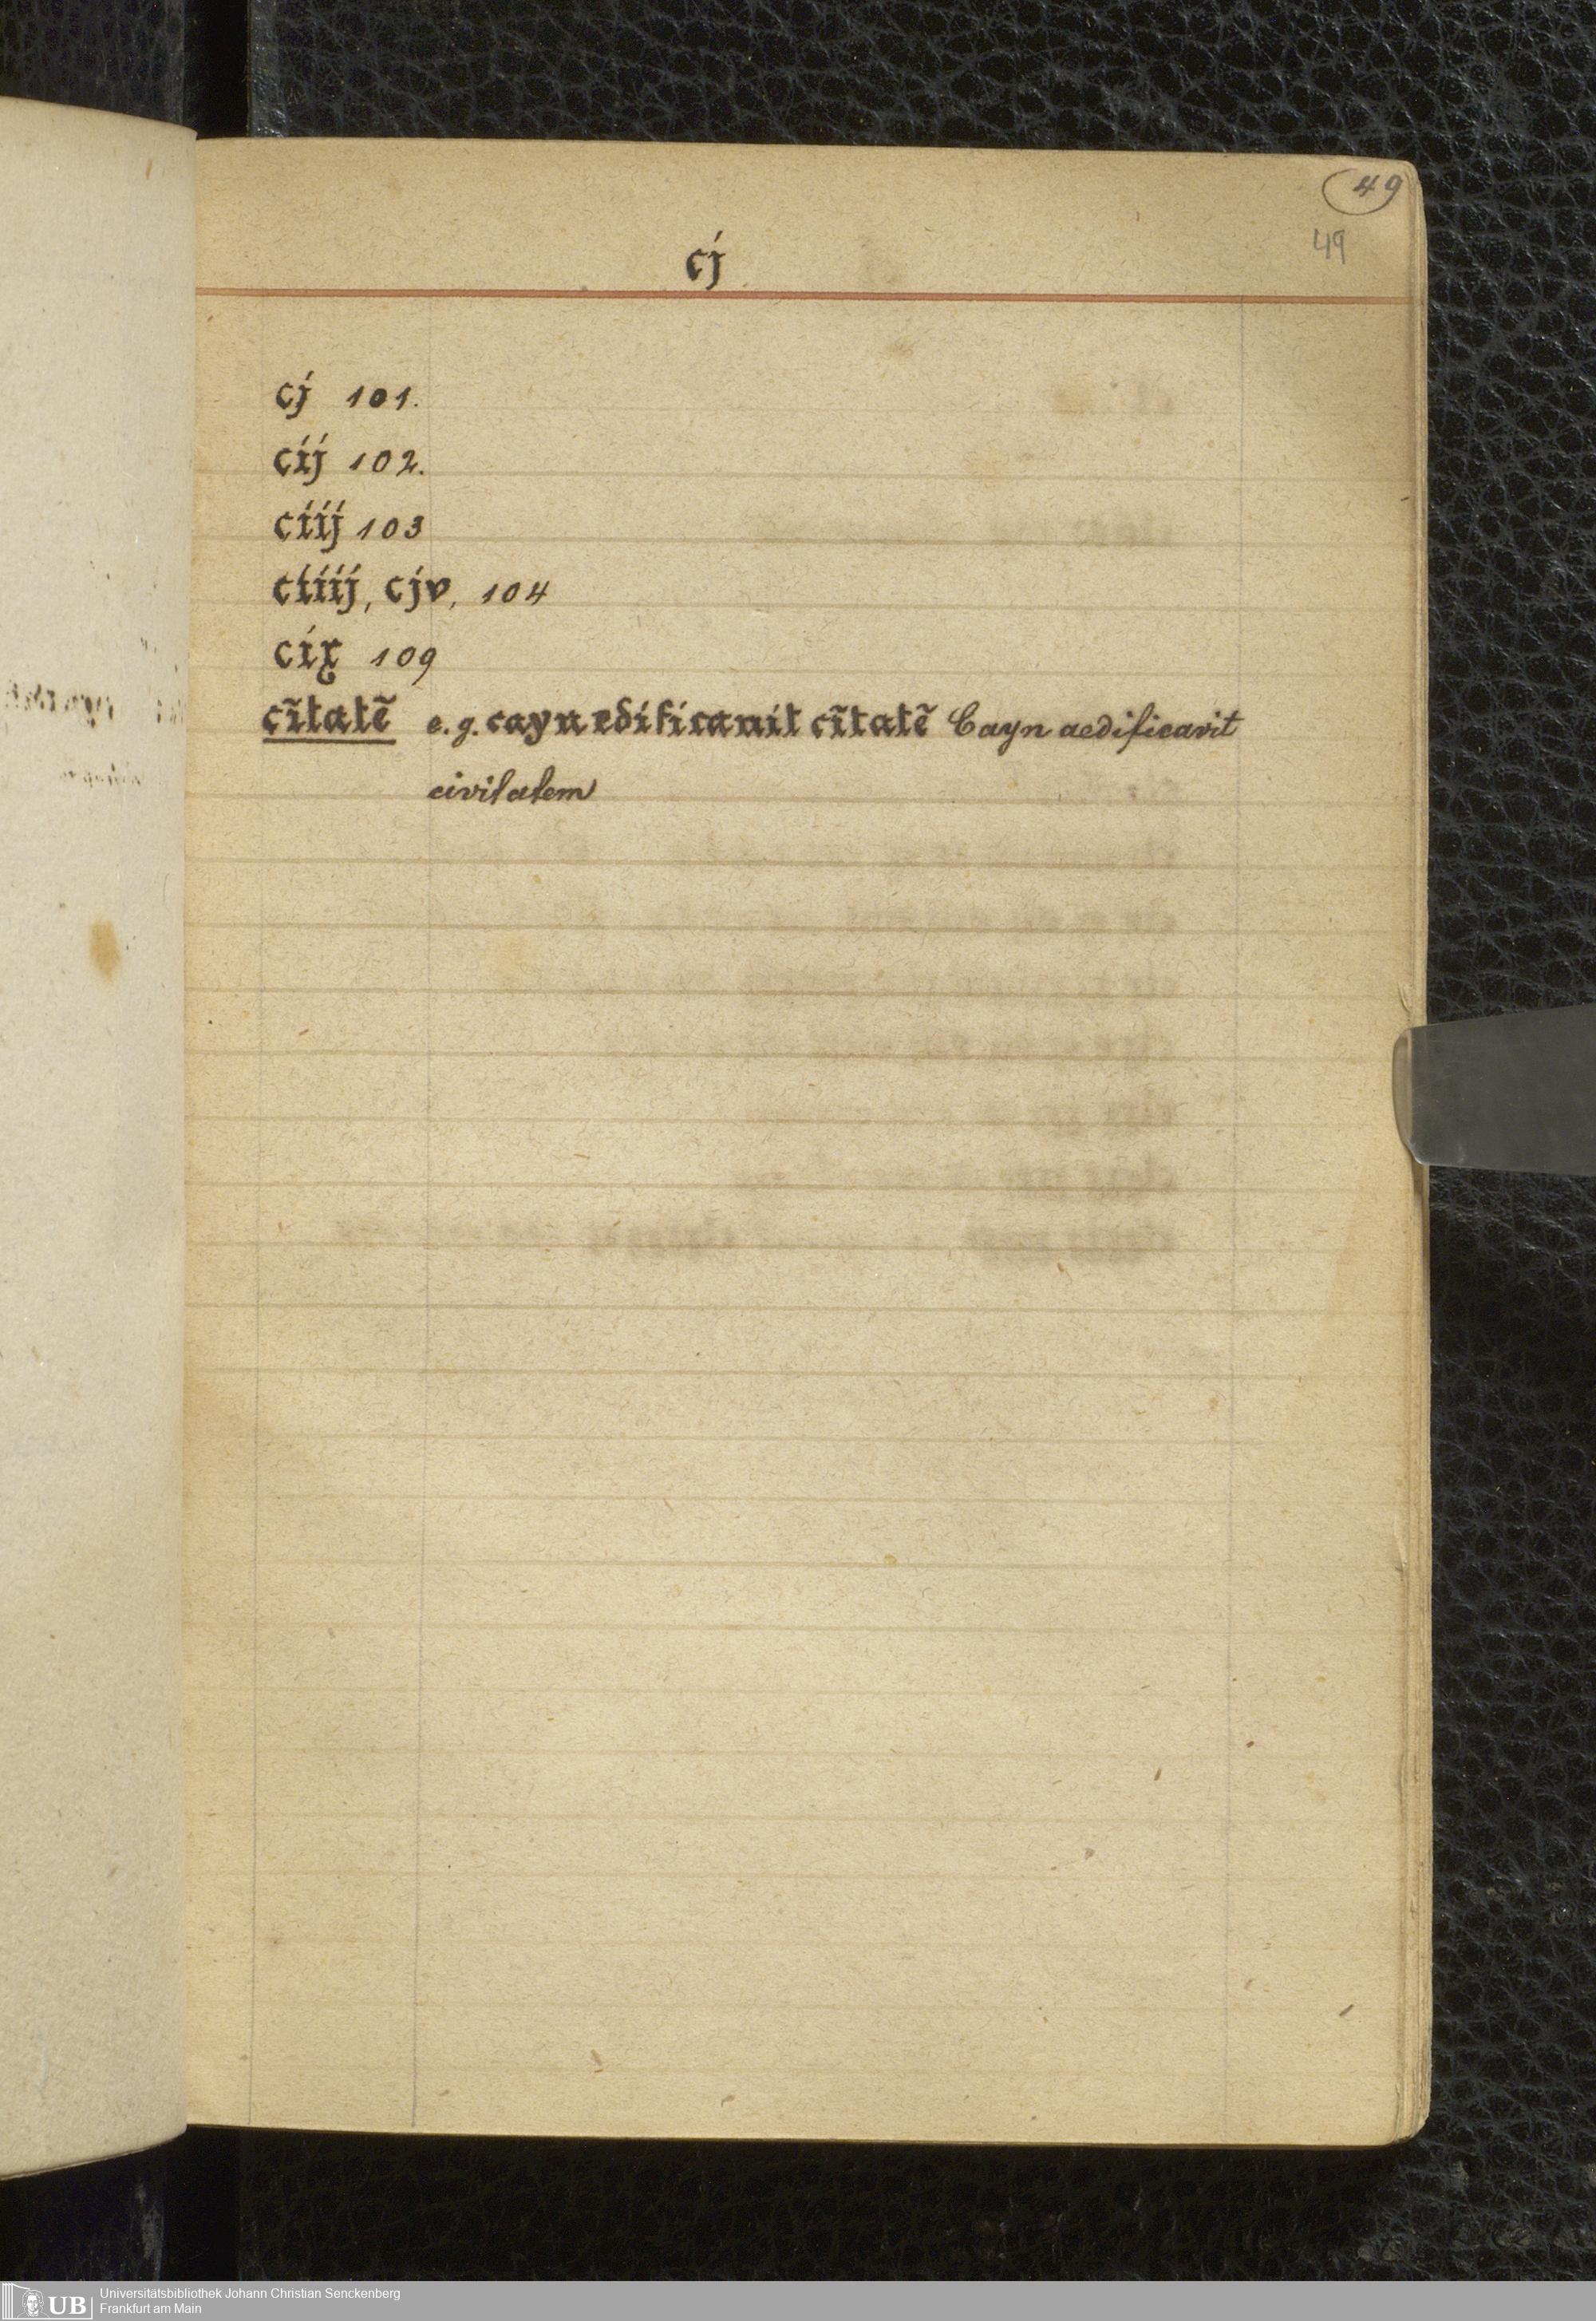 49
49
cj
cj 101.
cij 102.
ciij 103
ciiij, cjv, 104
cix 109
cĩtatẽ e.g. cayn edificauit cĩtatẽ Cayn aedificavit
civitatem
UB Universitätsbibliothek Johann Christian Senckenberg
Frankfurt am Main